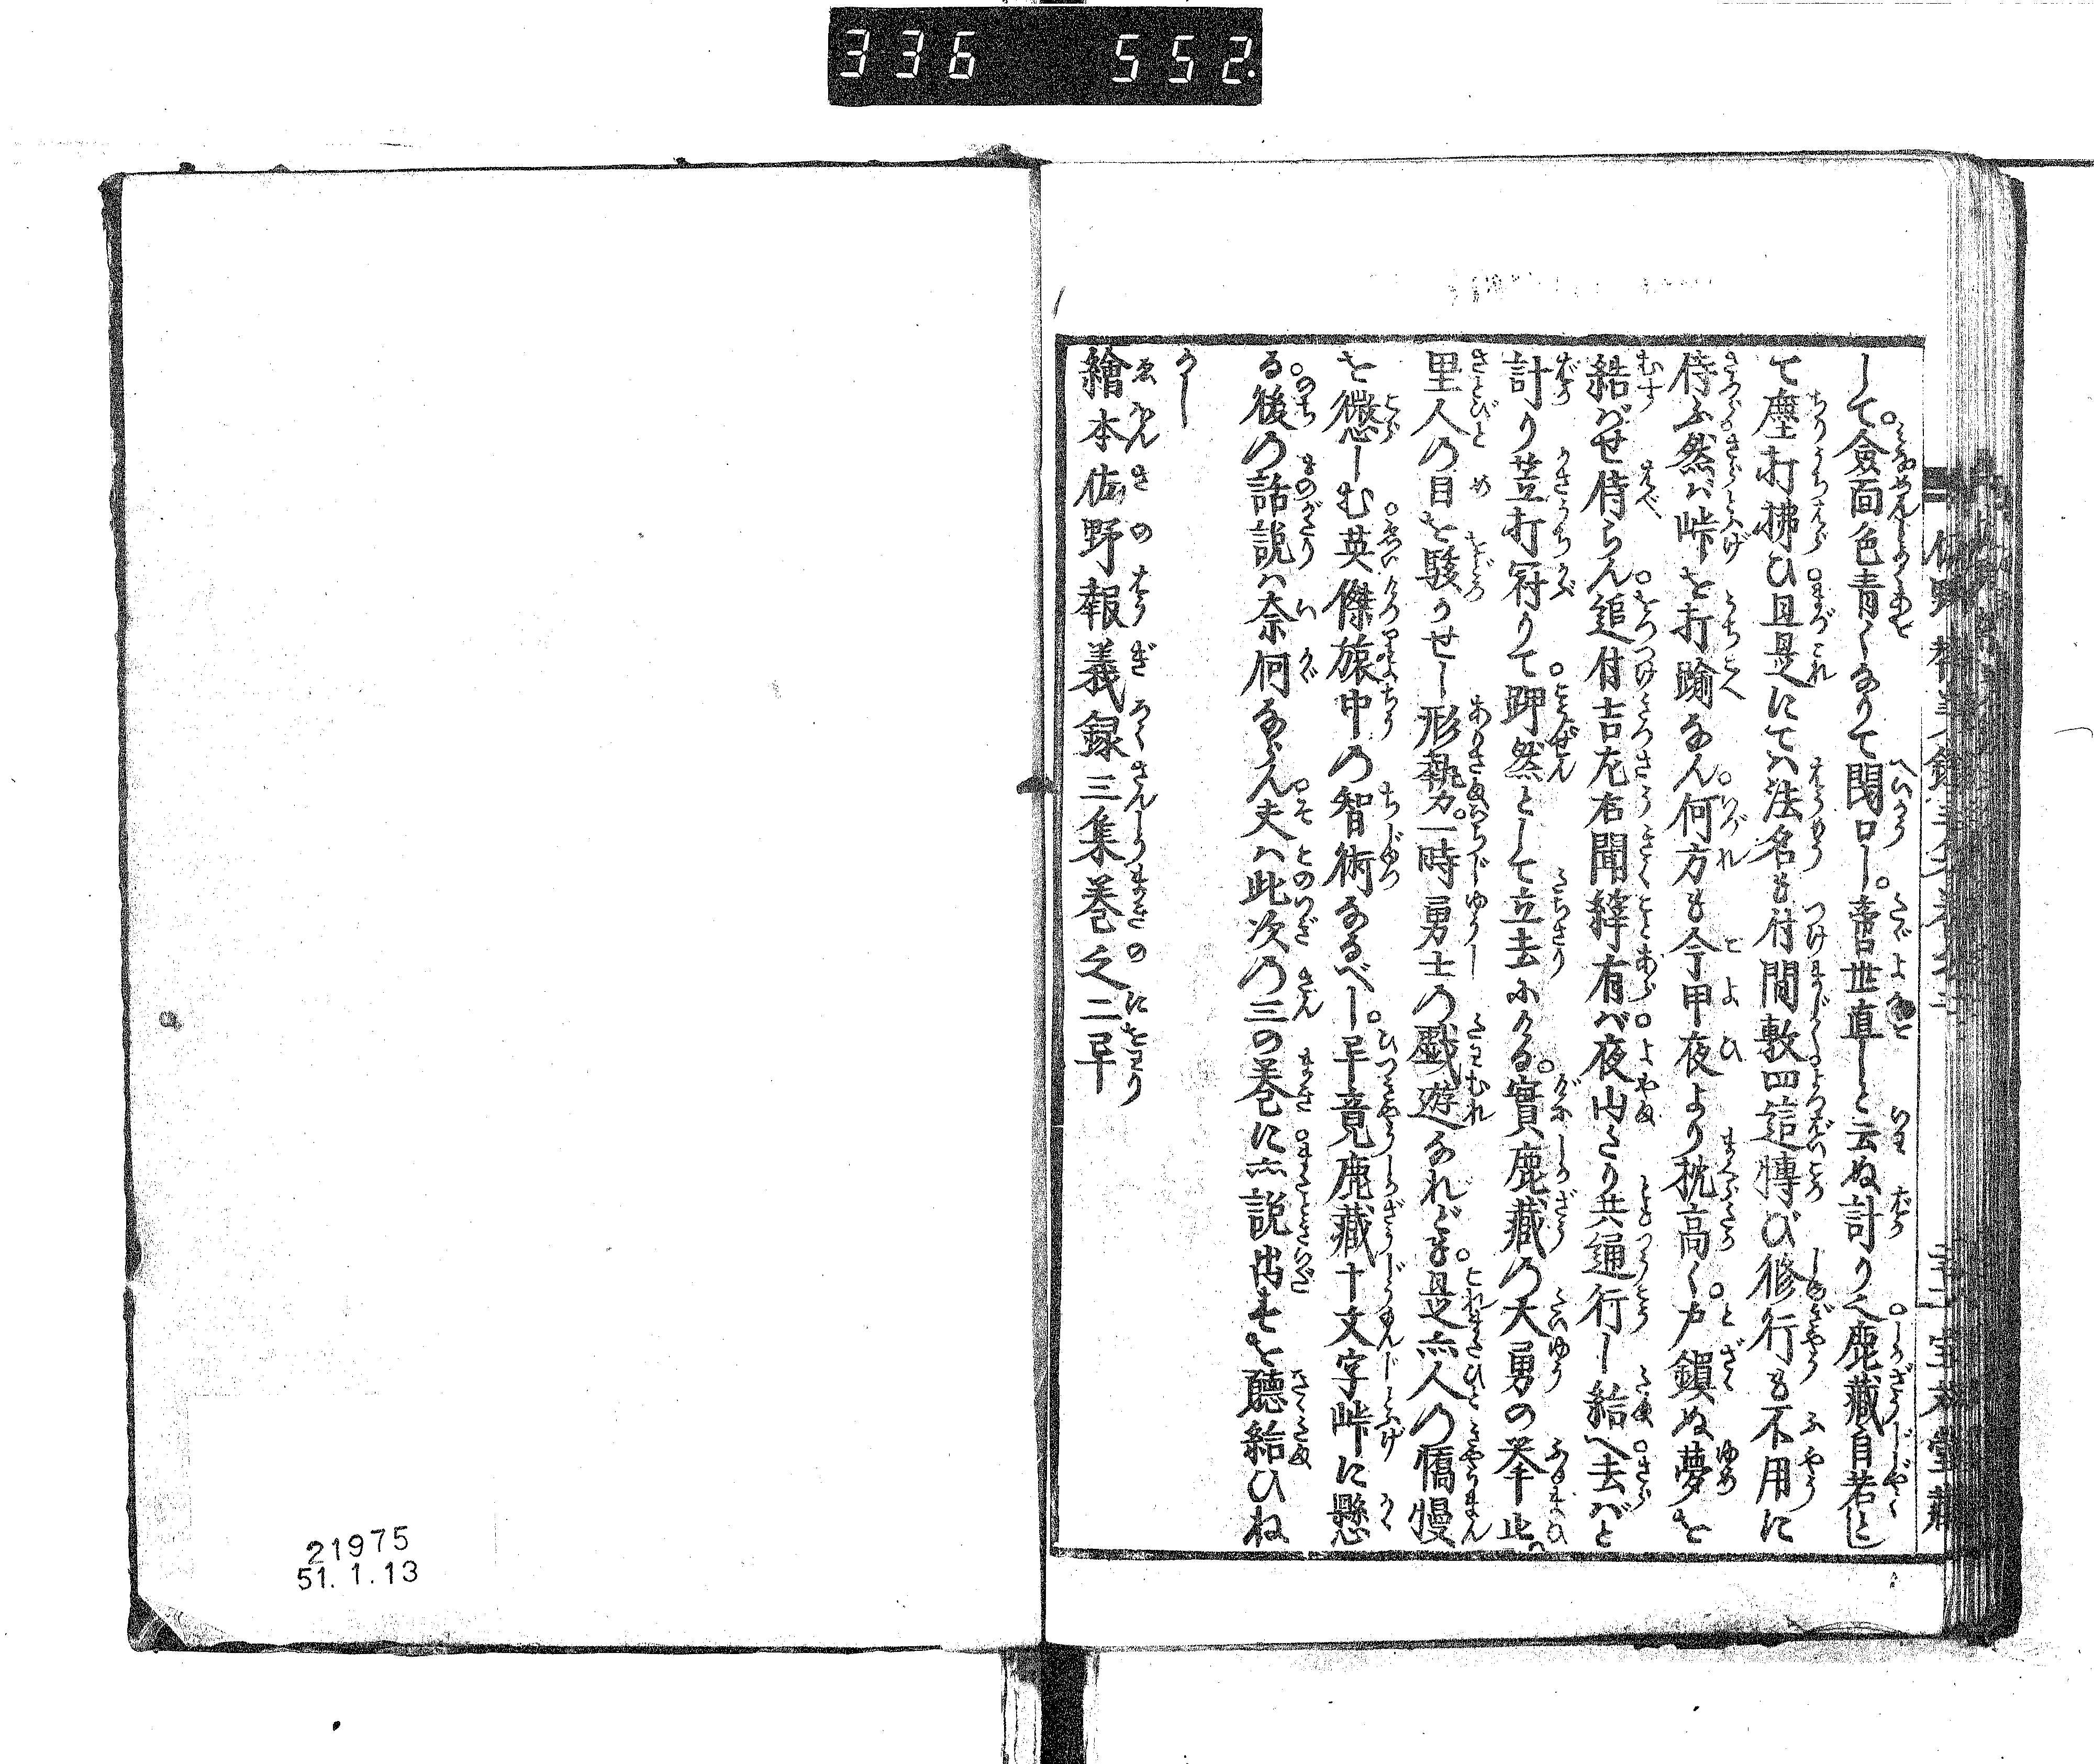 336 552.
して。僉面色青くなりて閉口し。啻世直しと云ぬ計り也鹿蔵自若として
て塵打拂ひ且是にてハ法名も付間敷四這轉び修行も不用に
侍ふ然バ峠を打踰なん何方も今甲夜より枕高く戸鎖ぬ夢を
結バせ侍らん追付吉左右聞繹有バ夜山より共通行し給へ去バと
計り荳打冠りて跰然として立去ふける。實鹿蔵の大勇の挙止。
里人の目を駭かせし形勢ハ。一時勇士の戯遊なれども。是亦人の憍慢
を懲しむ英傑旅中の智術なるべし。畢竟鹿蔵十文字峠に懸
る。後の話説ハ奈何ならん夫ハ此次の三の巻に亦説出すを聴給ひね
かし
繪本佐野報義録三集巻之二畢
21975
51.1.13